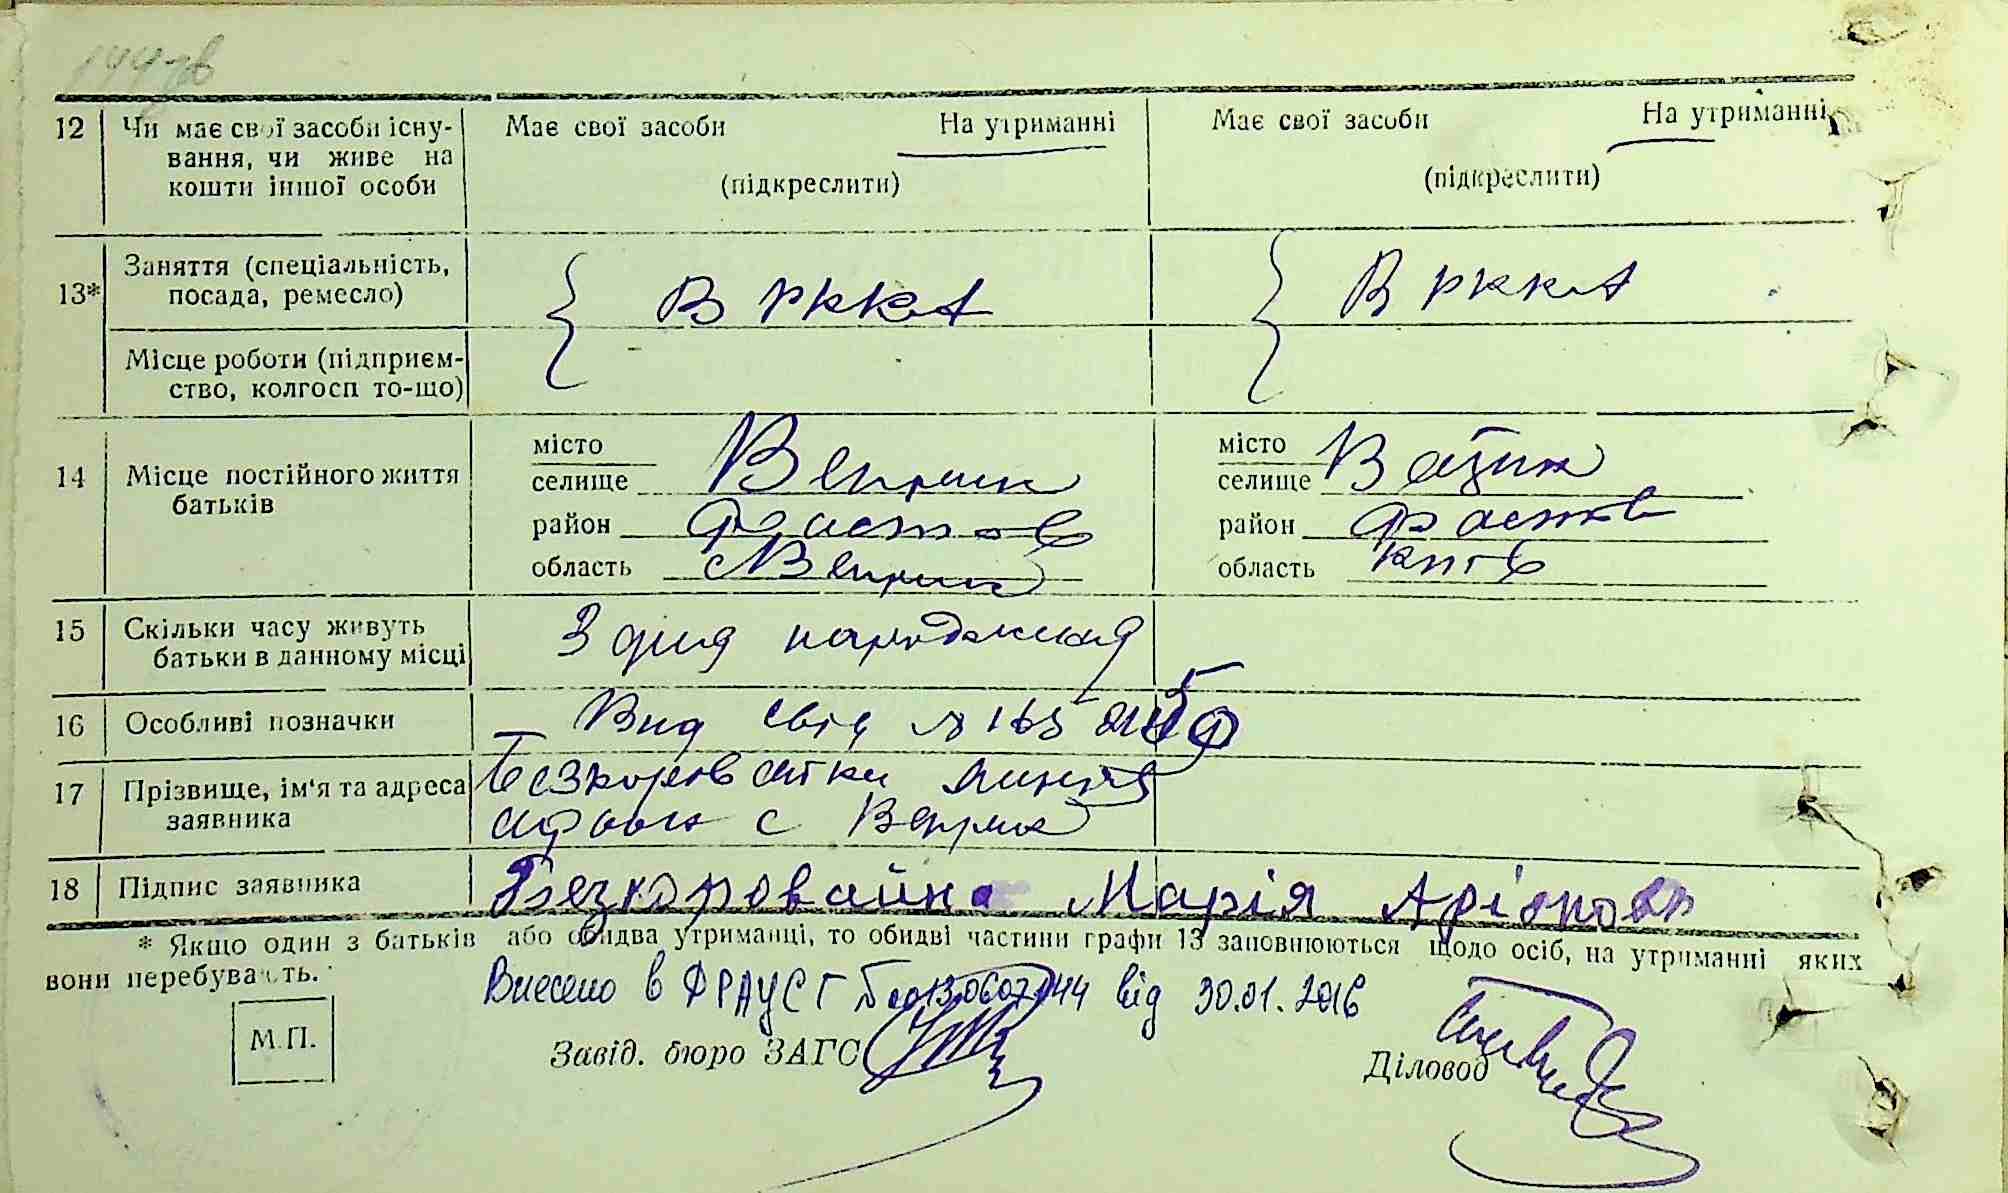 12 Чи має свої засоби існу- Має свої засоби На утриманні Має свої засоби На утриманні
вання, чи живе на
кошти іншої особи (підкреслити) (підкреслити)
13* Заняття (спеціальність, В РККА В РККА
посада, ремесло)
Місце роботи (підприєм-
ство, колгосп то-що)
14 Місце постійного життя місто місто
батьків селище Веприк селище
район Фастов район Фастов
область Веприк область Київ
15 Скільки часу живуть З дня народження
батьки в данному місці
16 Особливі позначки Вид №
17 Прізвище, ім'я та адреса
заявника с Веприк
18 Підпис заявника Безкоровайна Марія
* Якщо один з батьків або обидва утриманці, то обидві частини графи 13 заповнюються щодо осіб, на утриманні яких
вони перебувають.
Внесено в ФРАУСГ від 30.01.2016
М.П. Завід. бюро ЗАГС Діловод